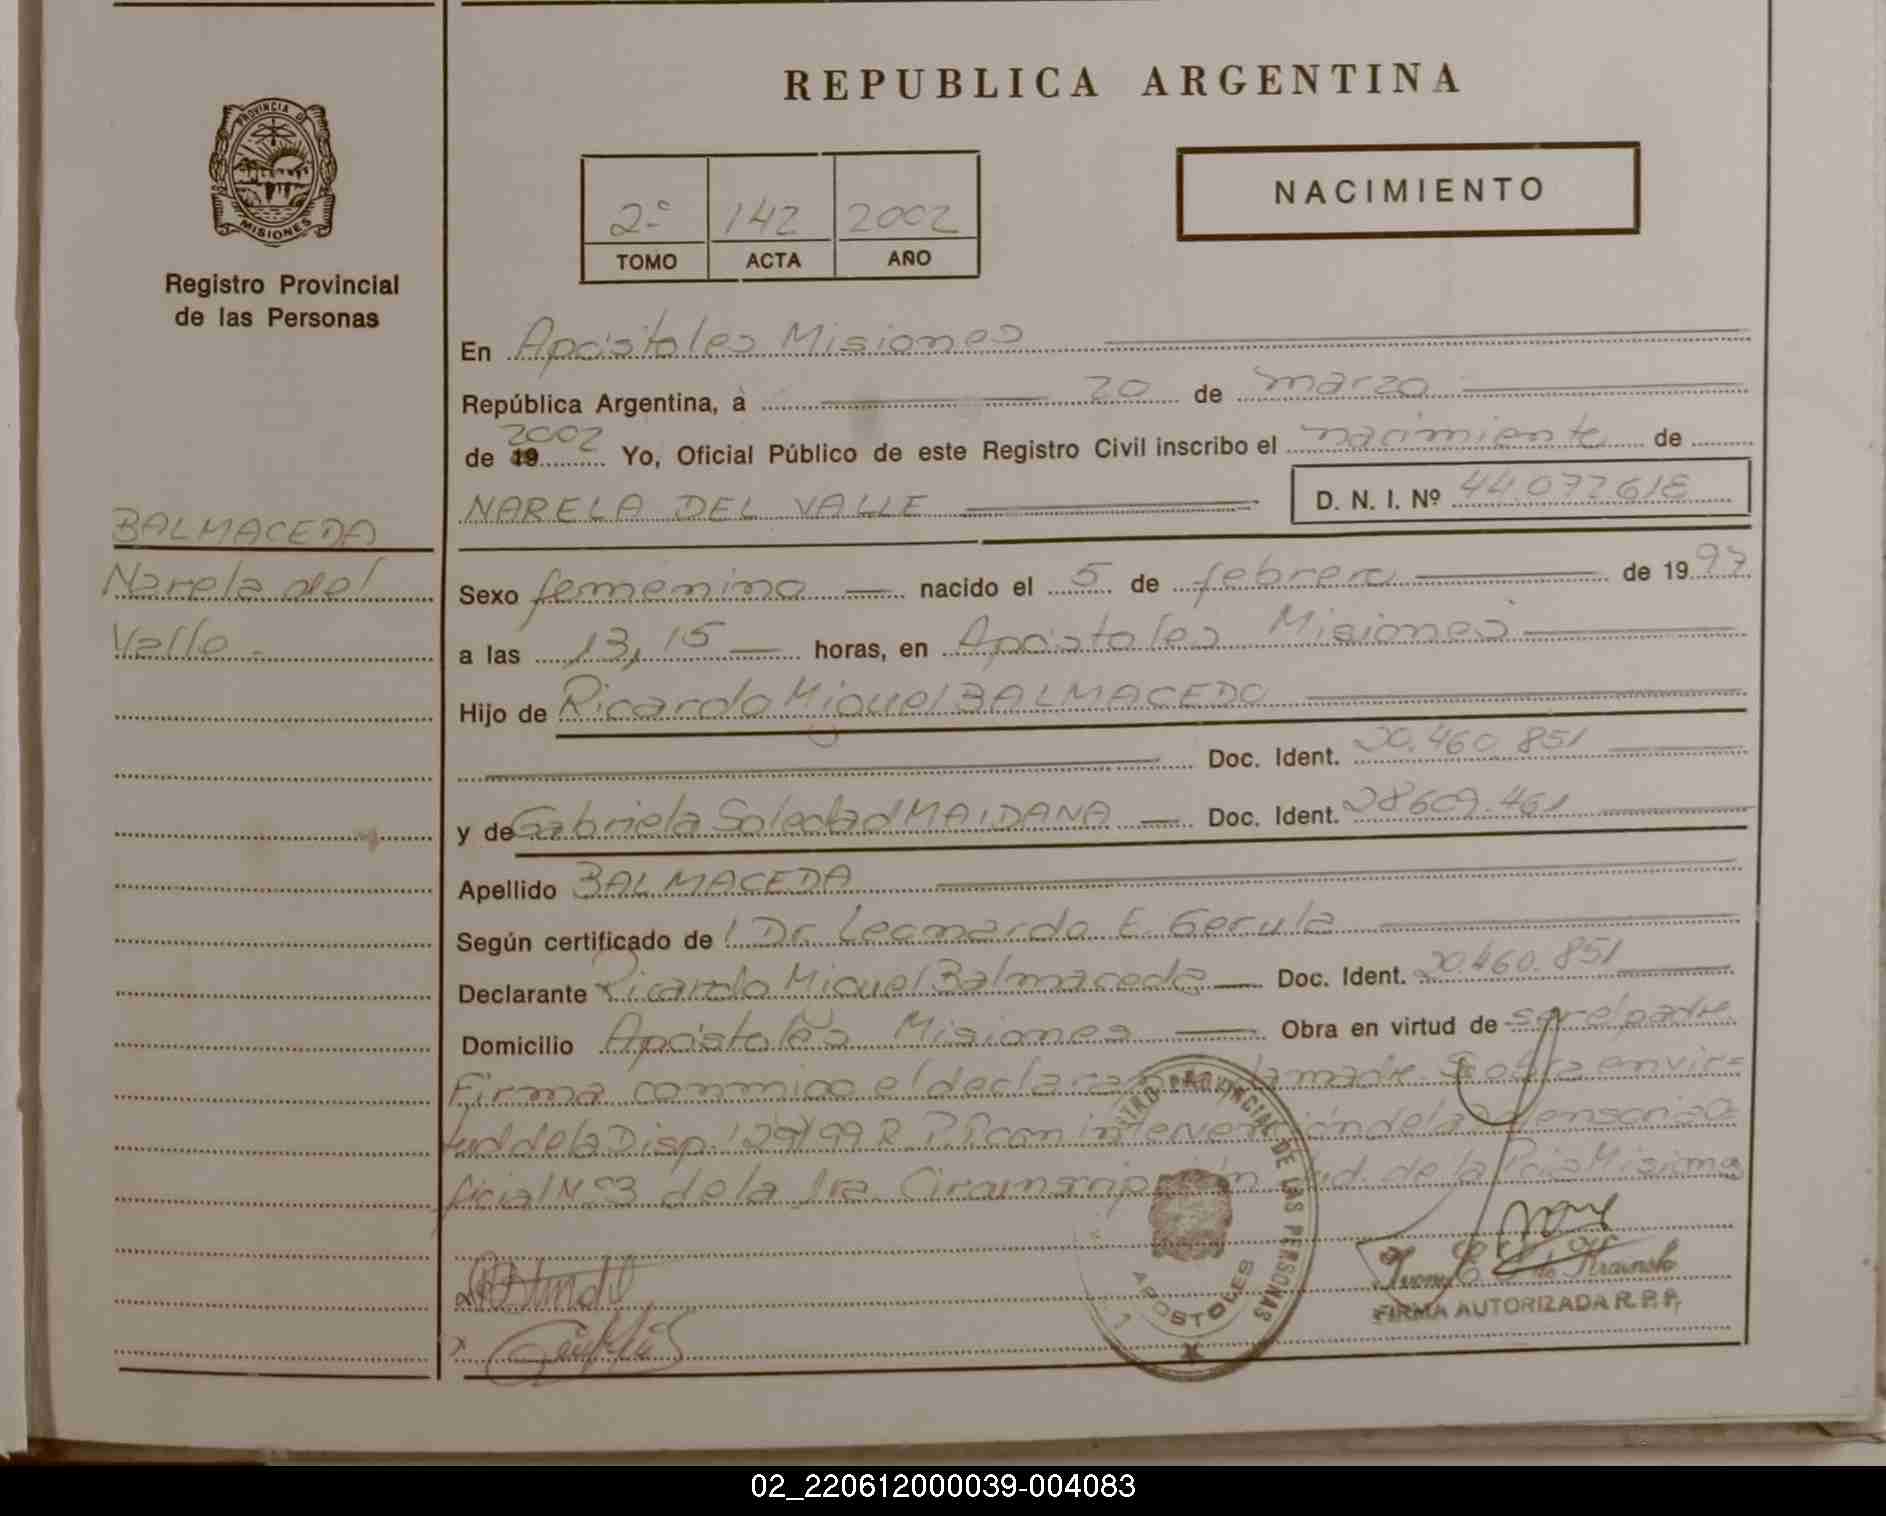 REPUBLICA ARGENTINA
PROVINCIA DE
MISIONES
Registro Provincial
de las Personas
2º 142 2002
TOMO ACTA AÑO
NACIMIENTO
En Apóstoles Misiones
República Argentina, a 20 de marzo
2002
de 19 Yo, Oficial Público de este Registro Civil inscribo el nacimiento de
NARELA DEL VALLE D. N. I. Nº 44.072618
BALMACEDA
Narela del
Valle.-
Sexo femenino nacido el 5 de febrero de 1997
a las 13,15 horas, en Apóstoles Misiones
Hijo de Ricardo Miguel BALMACEDO
Doc. Ident. 20.460.851
y de Gabriela Soledad MAIDANA Doc. Ident. 28609.461
Apellido BALMACEDA
Según certificado de Dr. Leonardo E. Gerula
Declarante Ricardo Miguel Balmaceda Doc. Ident. 20.460.851
Domicilio Apóstoles Misiones Obra en virtud de ser el padre
Firma conmigo el la madre. Se obra en vir=
tud de la Disp. 129/99 R.P.P. con intervención de la O=
ficial Nº3 de la 1ra. Circunscripción Jud. de la Pcia Misiones
REGISTRO PROVINCIAL DE LAS PERSONAS
APOSTOLES
FIRMA AUTORIZADA R.P.P.
02_220612000039-004083